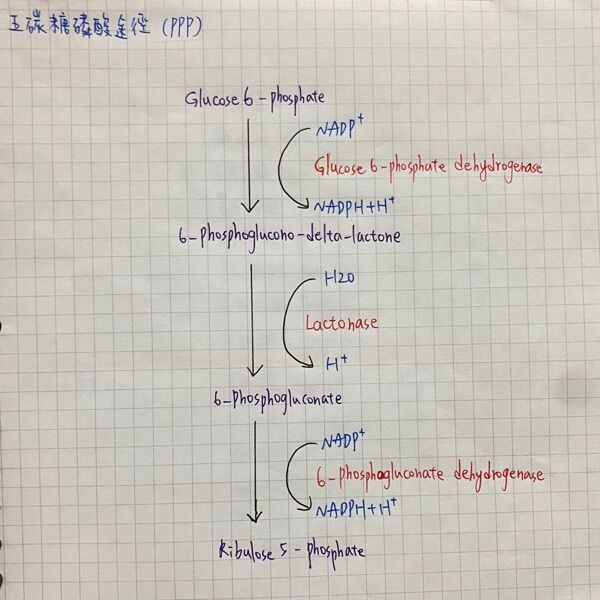 五碳糖磷酸途徑 (PPP)
Glucose 6-phosphate
NADP+
Glucose 6-phosphate dehydrogenase
NADPH+H+
6-phosphoglucono-delta-lactone
H2O
Lactonase
H+
6-phosphogluconate
NADP+
6-phosphogluconate dehydrogenase
NADPH+H+
Ribulose 5-phosphate